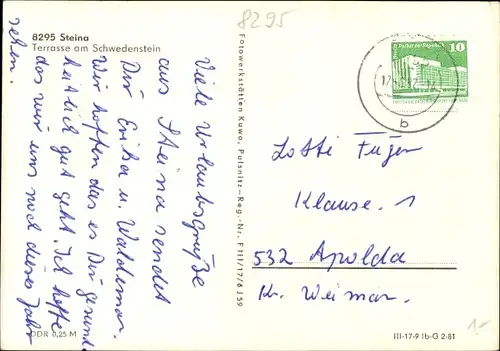 8295
8295 Steina
Terrasse am Schwedenstein
Viele Urlaubsgrüße
aus Steina sendet
Dir Erika u. Waldemar.
Wir hoffen das es Dir gesund-
heitlich gut geht. Ich hoffe
das wir uns noch dieses Jahr
sehen.
DDR 0,25 M
Fotowerkstätten Kuwo, Pulsnitz-Reg.-Nr. F III/17/6 J 59
10
b
Lotti Fügen
Klause. 1
532 Apolda
Kr. Weimar.
III-17-9 Ib-G 2-81
1.-